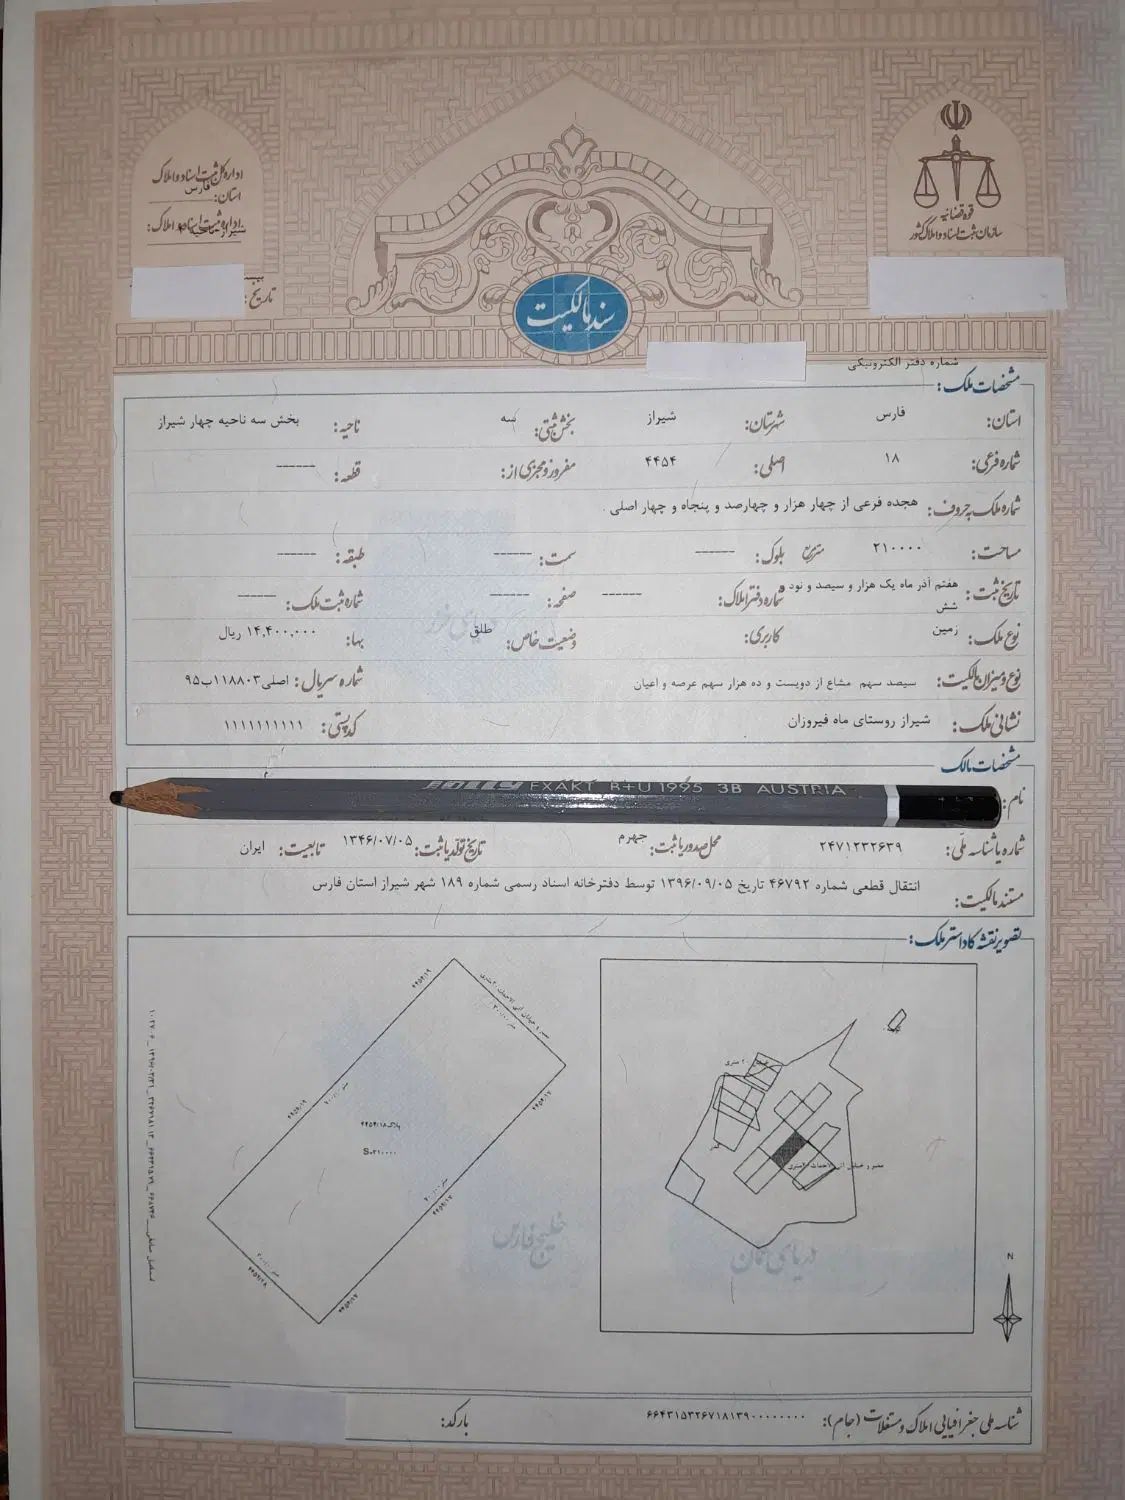 قوه قضائیه
سازمان ثبت اسناد و املاک کشور
اداره کل ثبت اسناد و املاک
استان: فارس
اداره ثبت اسناد و املاک:
تاریخ:
سند مالکیت
شماره دفتر الکترونیکی
مشخصات ملک:
استان: فارس شهرستان: شیراز بخش ثبتی: سه ناحیه: بخش سه ناحیه چهار شیراز
شماره فرعی: ۱۸ اصلی: ۴۴۵۴ مفروز و مجزی از: قطعه: ------
شماره ملک به حروف: هجده فرعی از چهار هزار و چهارصد و پنجاه و چهار اصلی .
مساحت: ۲۱۰۰۰۰ مترمربع بلوک: ------ سمت: ------ طبقه: ------
تاریخ ثبت: هفتم آذر ماه یک هزار و سیصد و نود و شش شماره دفتر املاک: ------ صفحه: ------ شماره ثبت ملک: ------
نوع ملک: زمین کاربری: وضعیت خاص: طلق بها: ۱۴,۴۰۰,۰۰۰ ریال
نوع و میزان مالکیت: سیصد سهم مشاع از دویست و ده هزار سهم عرصه و اعیان شماره سریال: اصلی۱۱۸۸۰۳ب۹۵
نشانی ملک: شیراز روستای ماه فیروزان کد پستی: ۱۱۱۱۱۱۱۱۱۱
مشخصات مالک
نام:
EXAKT B+U 1995 3B AUSTRIA
شماره یا شناسه ملی: ۲۴۷۱۲۳۲۶۳۹ محل صدور یا ثبت: جهرم تاریخ تولد یا ثبت: ۱۳۴۶/۰۷/۰۵ تابعیت: ایران
مستند مالکیت: انتقال قطعی شماره ۴۶۷۹۲ تاریخ ۱۳۹۶/۰۹/۰۵ توسط دفترخانه اسناد رسمی شماره ۱۸۹ شهر شیراز استان فارس
تصویر نقشه کاداستر ملک:
پلاک۴۴۵۴/۱۸
S=۲۱۰۰۰۰
N
دریای خزر
خلیج فارس
دریای عمان
شناسه ملی جغرافیایی املاک و مستغلات (جام): ۶۶۴۳۱۵۳۲۶۷۱۸۱۳۹۰۰۰۰۰۰۰۰ بارکد: